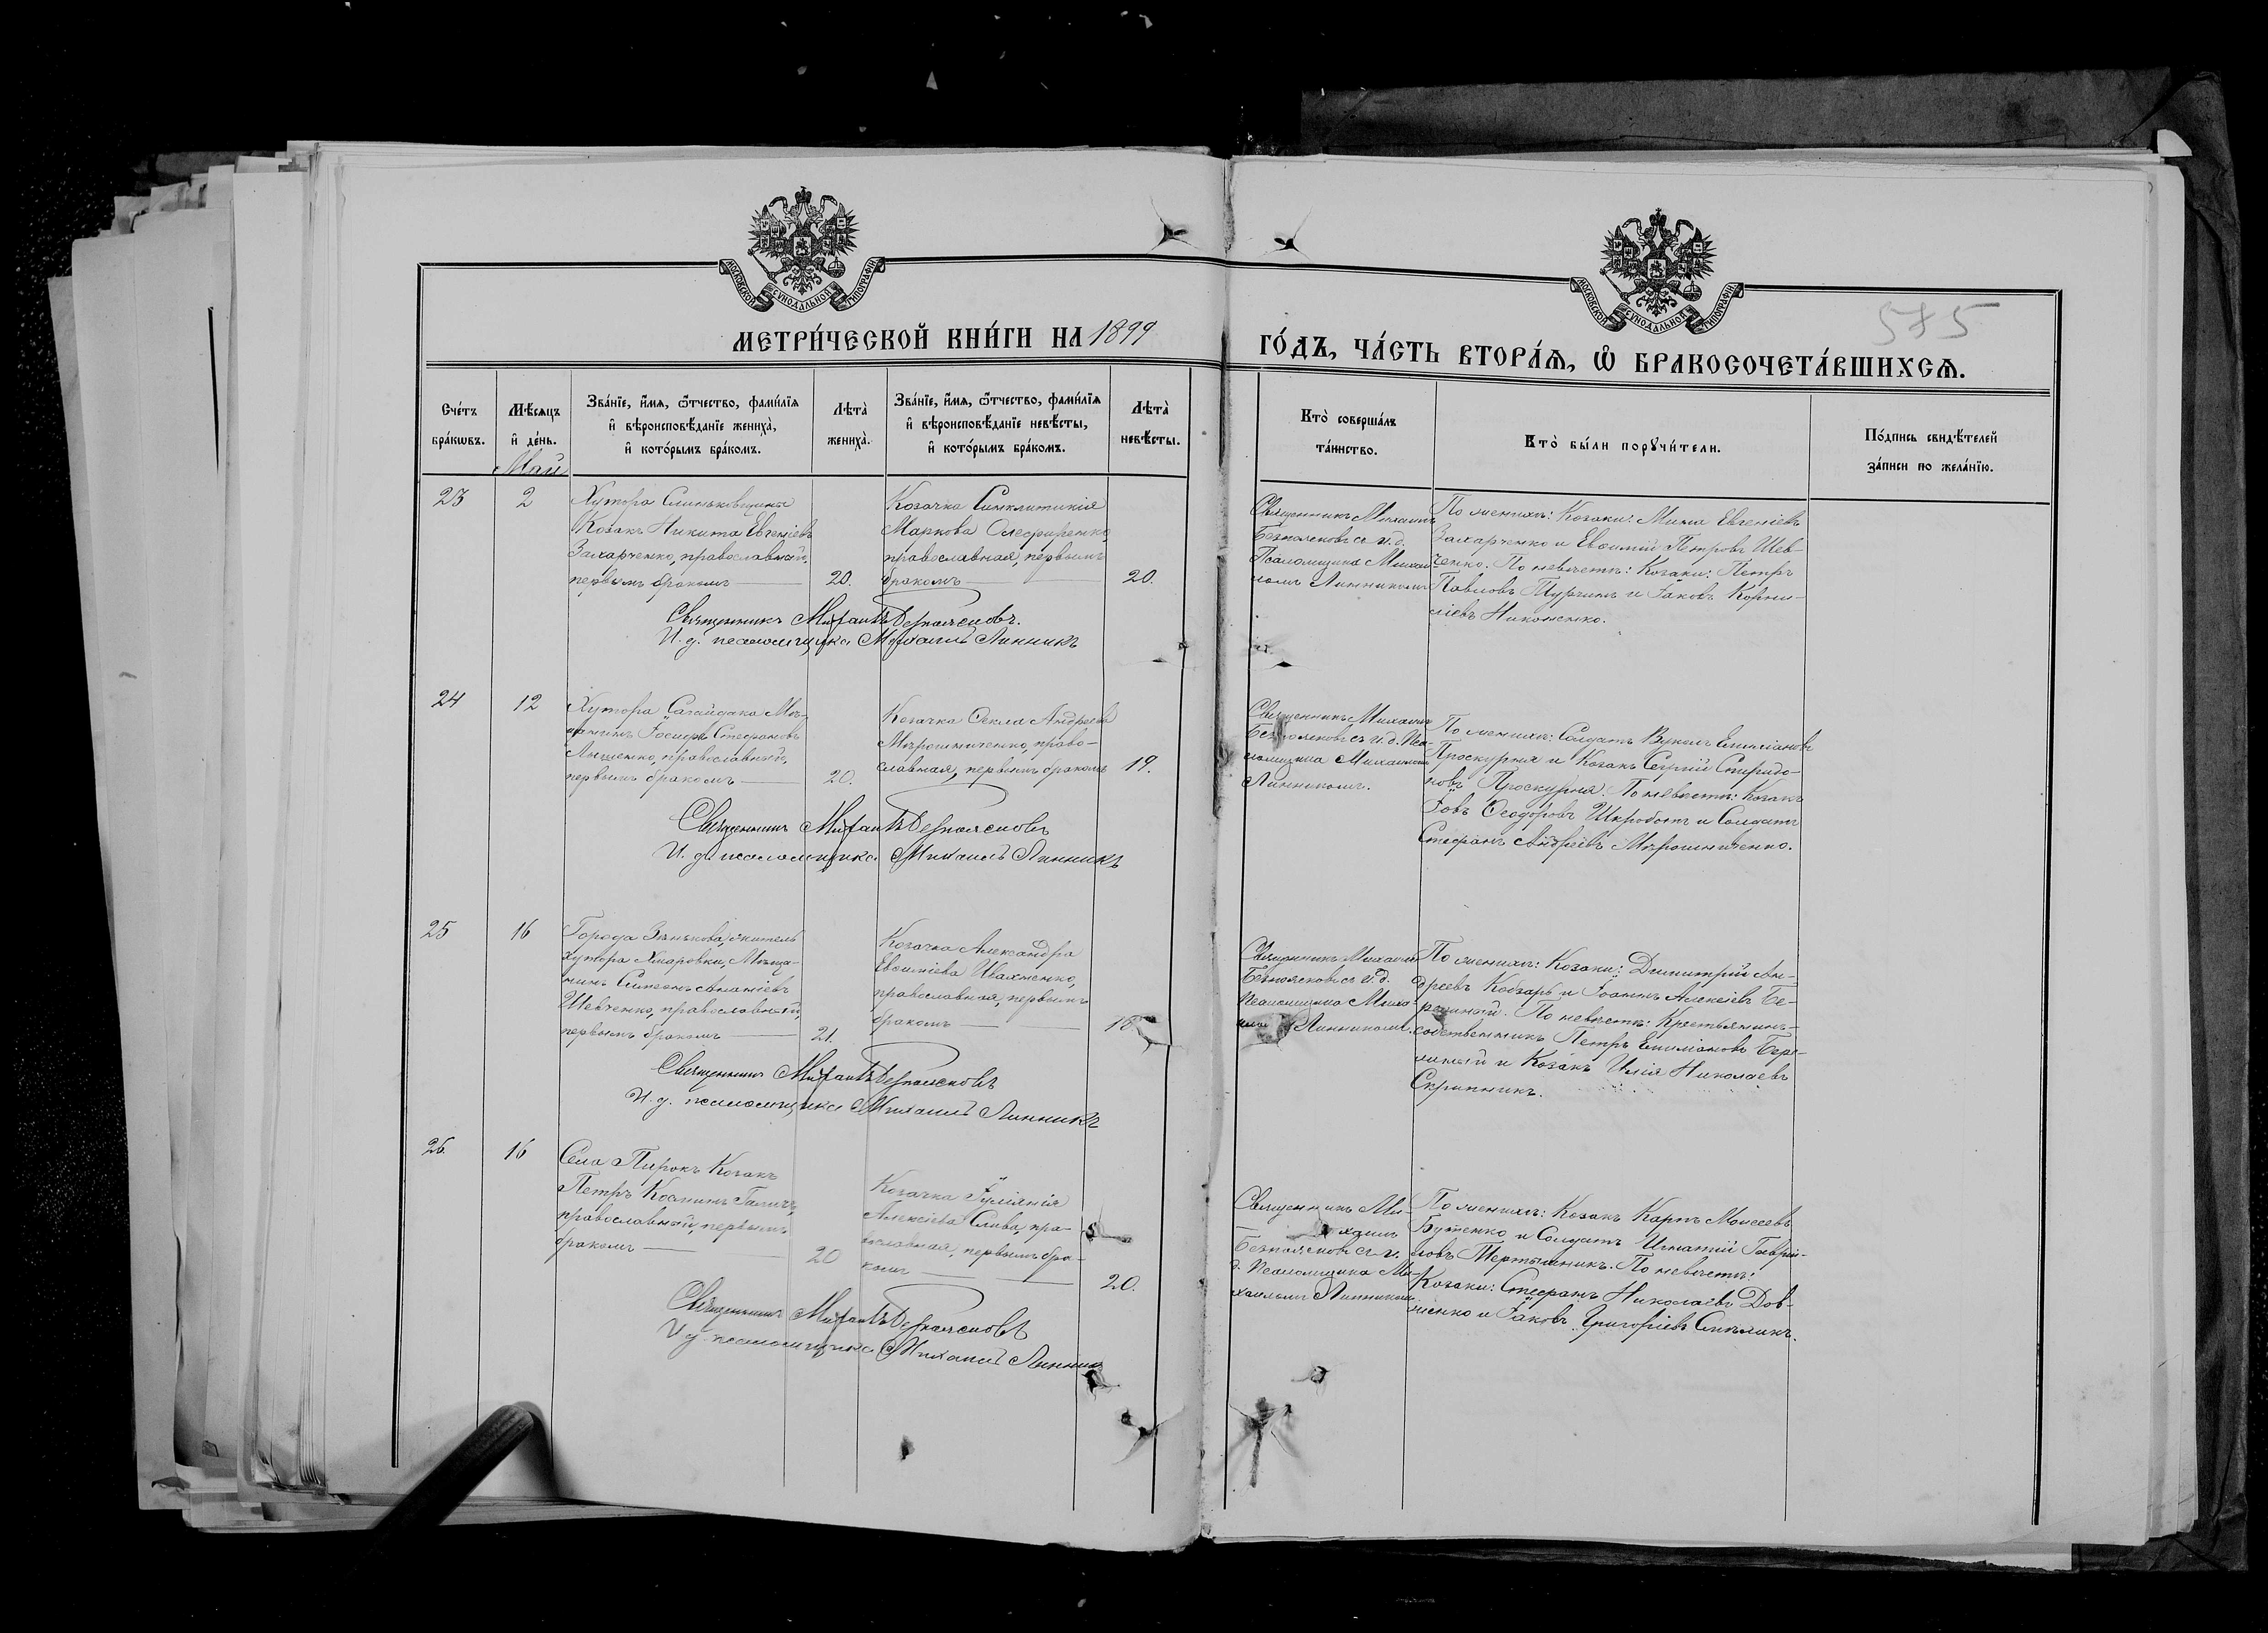 МОСКОВСКОЙ СУНОДАЛЬНОЙ ТИПОГРАФІИ
МОСКОВСКОЙ СУНОДАЛЬНОЙ ТИПОГРАФІИ
575
МЕТРИ́ЧЕСКОЙ КНИ́ГИ НА 1899 ГО́ДЪ, ЧА́СТЬ ВТОРА́Ѧ, Ѡ҆ БРАКОСОЧЕТА́ВШИХСѦ.
Сче́тъ бра́кѡвъ.
Мѣ́сѧцъ и҆ де́нь.
Май
Зва́нїе, и҆́мѧ, ѻ҆́тчество, фами́лїѧ
и҆ вѣроисповѣ́данїе жениха̀,
и҆ кото́рымъ бра́комъ.
Лѣта̀ жениха̀.
Зва́нїе, и҆́мѧ, ѻ҆́тчество, фами́лїѧ
и҆ вѣроисповѣ́данїе невѣ́сты,
и҆ кото́рымъ бра́комъ.
Лѣта̀ невѣ́сты.
Кто̀ соверша́лъ
та́инство.
Кто̀ бы́ли порꙋчи́тели.
По́дпись свидѣ́телей
за́писи по жела́нїю.
23
2
Хутора Слинковщины
Козакъ Никита Евгеніевъ
Захарченко, православный,
первымъ бракомъ
20.
Козачка Синклитикія
Маркова Олефиренко,
православная, первымъ
бракомъ
20.
Священникъ Михаилъ
Безпоясковъ съ и. д.
Псаломщика Михаи-
ломъ Линникомъ
По женихѣ: Козаки: Мина Евгеніевъ
Захарченко и Евѳимій Петровъ Шев-
ченко. По невѣстѣ: Козаки: Петръ
Павловъ Турчинъ и Іаковъ Корни-
ліевъ Никоненко.
Священникъ Михаилъ Безпоясковъ.
И. д. псаломщика Михаилъ Линникъ
24
12
Хутора Сагайдака Мѣ-
щанинъ Іосифъ Стефановъ
Лященко, православный,
первымъ бракомъ
20.
Козачка Ѳекла Андреева
Мѣрошниченко, право-
славная, первымъ бракомъ
19.
Священникъ Михаилъ
Безпоясковъ съ и. д. Пса-
ломщика Михаиломъ
Линникомъ.
По женихѣ: Солдатъ Вуколъ Емиліановъ
Проскурня и Козакъ Сергій Спиридо-
новъ Проскурня. По невѣстѣ: Козакъ
Іовъ Ѳеодоровъ Шкроботъ и Солдатъ
Стефанъ Андреевъ Мѣрошниченко.
Священникъ Михаилъ Безпоясковъ
И. д. псаломщика Михаилъ Линникъ
25
16
Города Зѣнькова, житель
хутора Хмаровки, Мѣща-
нинъ Симеонъ Ананіевъ
Шевченко, православный
первымъ бракомъ
21.
Козачка Александра
Евѳиміева Ивахненко,
православная, первымъ
бракомъ
18
Священникъ Михаилъ
Безпоясковъ съ и. д.
Псаломщика Миха-
иломъ Линникомъ.
По женихѣ: Козаки: Димитрій Ан-
дреевъ Кобзарь и Іоаннъ Алексіевъ Бе-
режный. По невѣстѣ: Крестьянинъ-
собственникъ Петръ Емиліановъ Бере-
жный и Козакъ Илія Николаевъ
Скрипникъ.
Священникъ Михаилъ Безпоясковъ
И. д. псаломщика Михаилъ Линникъ
26.
16
Села Пирокъ Козакъ
Петръ Косминъ Галичъ,
православный, первымъ
бракомъ
20
Козачка Іуліянія
Алексіева Слива, пра-
вославная, первымъ бра-
комъ
20.
Священникъ Ми-
хаилъ
Безпоясковъ съ и.
д. Псаломщика Ми-
хаиломъ Линникомъ
По женихѣ: Козакъ Карпъ Моисеевъ
Бутенко и Солдатъ Игнатій Гаврии-
ловъ Тертышникъ. По невѣстѣ:
Козаки: Стефанъ Николаевъ Дов-
женко и Іаковъ Григоріевъ
Священникъ Михаилъ Безпоясковъ
И. д. псаломщика Михаилъ Линникъ